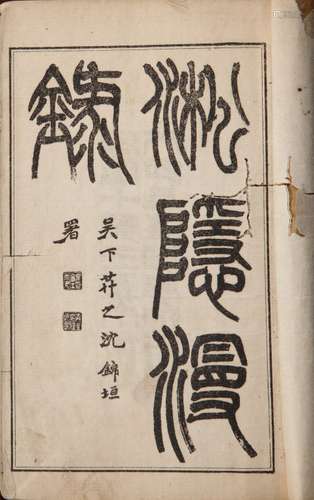 淞隱漫
錄
吴下莽之沈錦垣
署